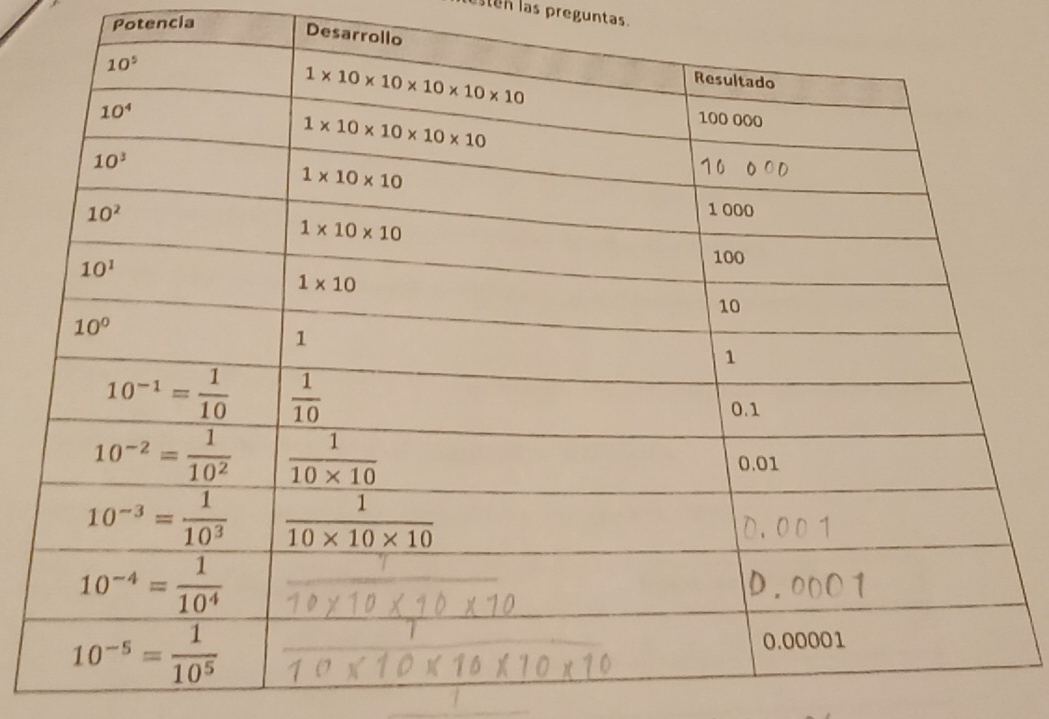 las preguntas.
Potencia Desarrollo Resultado
10⁵ 1 × 10 × 10 × 10 × 10 × 10 100 000
10⁴ 1 × 10 × 10 × 10 × 10 10 000
10³ 1 × 10 × 10 1 000
10² 1 × 10 × 10 100
10¹ 1 × 10 10
10⁰ 1 1
10⁻¹ = 1/10 1/10 0.1
10⁻² = 1/10² 1/(10 × 10) 0.01
10⁻³ = 1/10³ 1/(10 × 10 × 10) 0.001
10⁻⁴ = 1/10⁴ 1/(10 × 10 × 10 × 10) 0.0001
10⁻⁵ = 1/10⁵ 1/(10 × 10 × 10 × 10 × 10) 0.00001
1